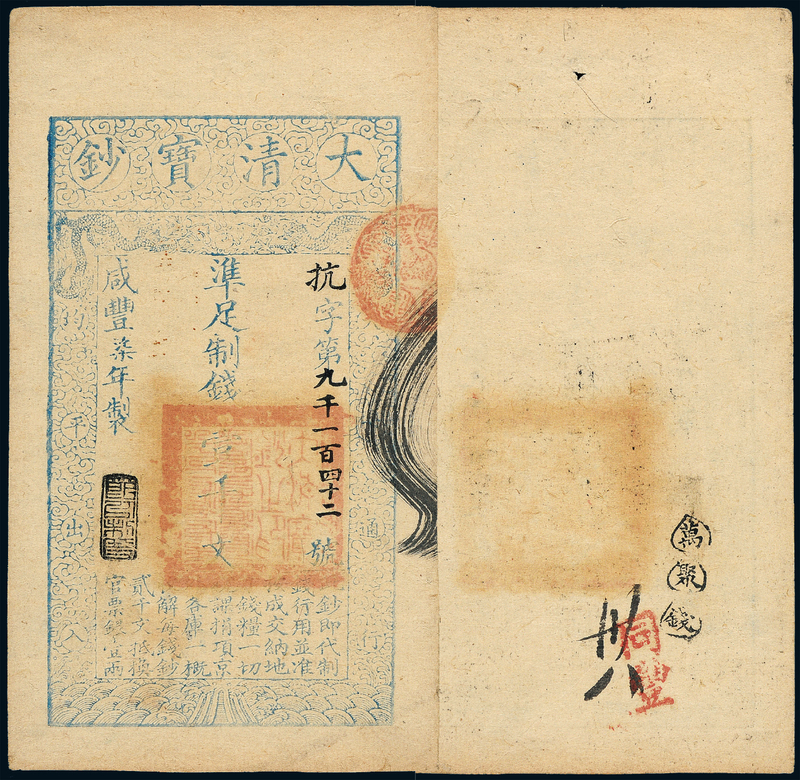 大清寶鈔
抗字第九千一百四十二號
準足制錢壹千文
咸豐柒年製
通行
平出入
鈔即代制
錢行用並准
成交納地
錢糧一切
課捐項京
各庫一概
解每錢鈔
貳千文抵換
官票銀壹兩
萬聚錢
同豐